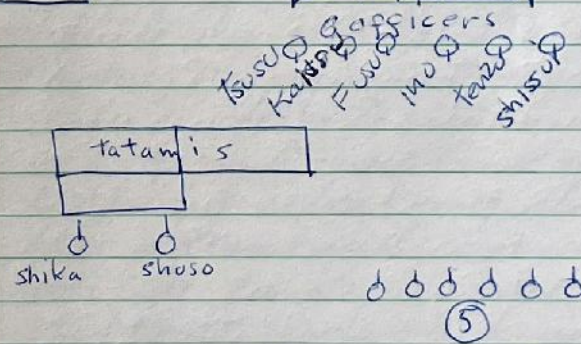 6 officers
Tsusu Kansu Fusu Ino Tenzo Shissui
tatamis
shika shuso
5